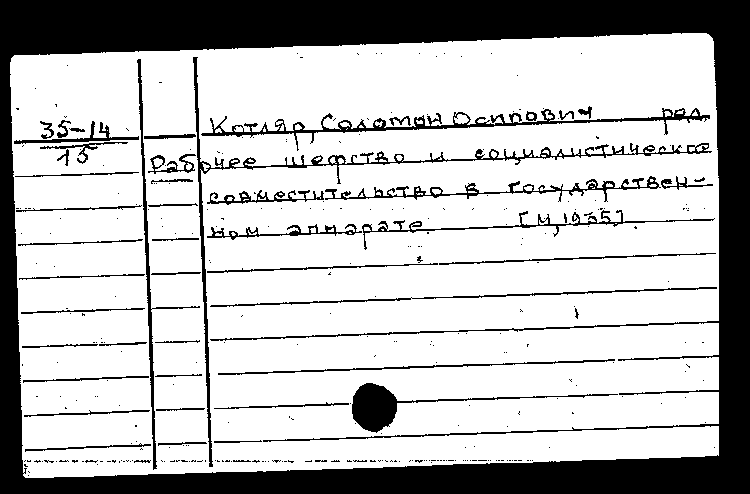 35-14
15
Котляр, Соломон Осипович ред.
Рабочее шефство и социалистическое
совместительство в государствен-
ном аппарате. [М, 1935].